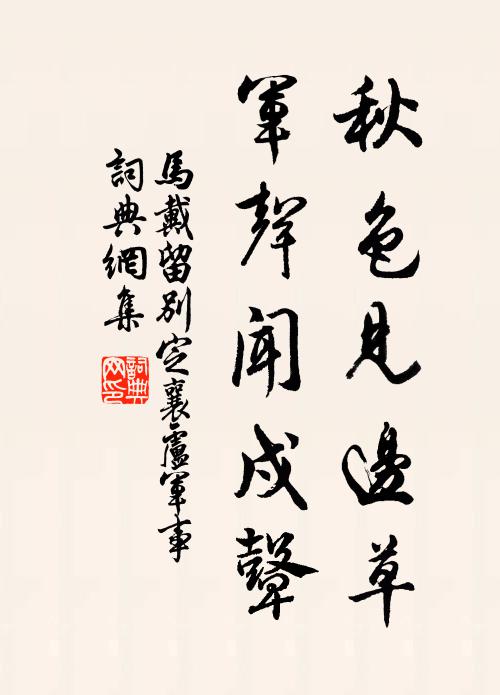 秋色見邊草
軍聲聞戍鼙
馬戴留別定襄盧軍事
詞典網集
詞典網印